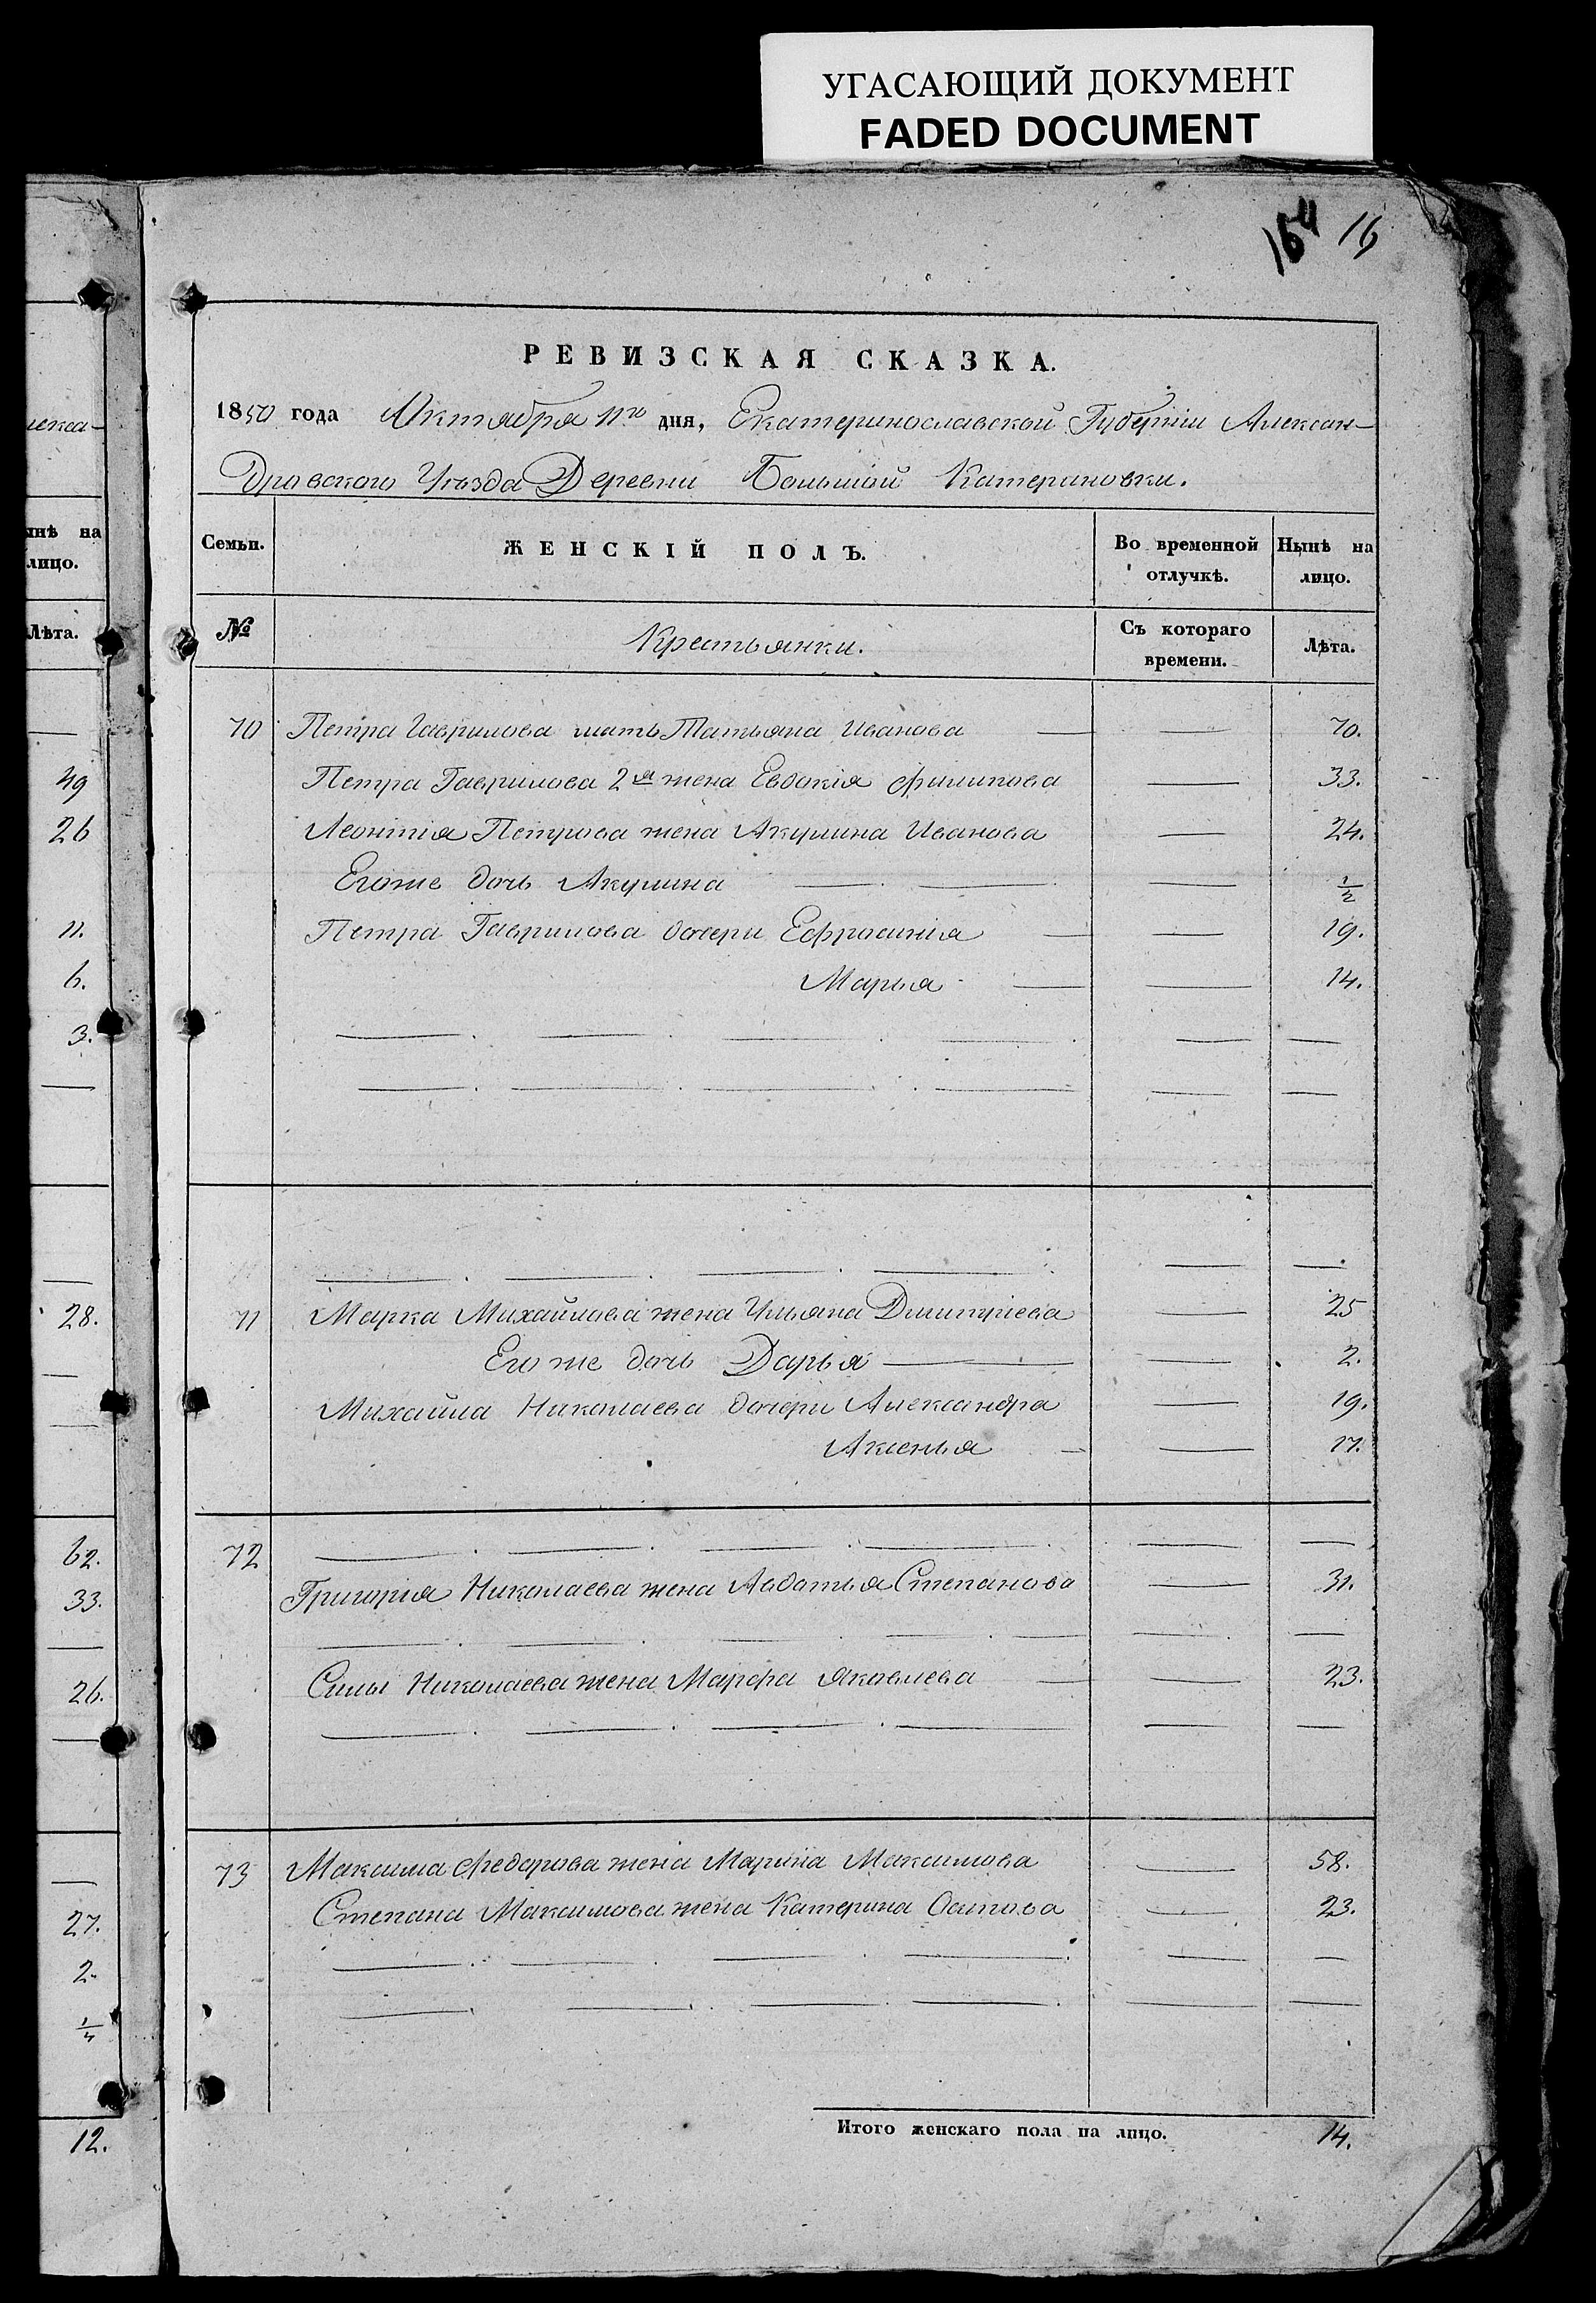 УГАСАЮЩИЙ ДОКУМЕНТ
FADED DOCUMENT
164 16
РЕВИЗСКАЯ СКАЗКА.
1850 года Октября 11го дня, Екатеринославской Губерніи Алексан-
дровского Уѣзда Деревни Большой Катериновки.
Семьи. ЖЕНСКІЙ ПОЛЪ. Во временной отлучкѣ. Нынѣ на лицо.
№ Крестьянки. Съ котораго времени. Лѣта.
70 Петра Гаврилова мать Татьяна Иванова — — 70.
Петра Гаврилова 2я жена Евдокія Филипова — 33.
Леонтія Петрова жена Акулина Иванова — 24.
Его же дочь Акулина — — — 1/2
Петра Гаврилова дочери Ефросинія — — 19.
Марья — — 14.
— — — — — —
— — — — — —
— — — — — —
71 Марка Михайлова жена Ульяна Дмитріева — 25
Его же дочь Дарья — — 2.
Михайла Николаева дочери Александра — 19.
Аксенья — — 17.
72 — — — — — —
Григорія Николаева жена Авдотья Степанова — 31.
— — — — — — —
Силы Николаева жена Марфа Яковлева — — 23.
— — — — — —
73 Максима Федорова жена Марина Максимова — 58.
Степана Максимова жена Катерина Осипова — 23.
— — — — — —
— — — — — —
Итого женскаго пола на лицо. 14.
лекса-
ынѣ на
лицо.
Лѣта.
—
49
26
11.
6.
3.
—
—
28.
—
—
62.
33.
—
26.
—
—
27.
2.
1/4
12.